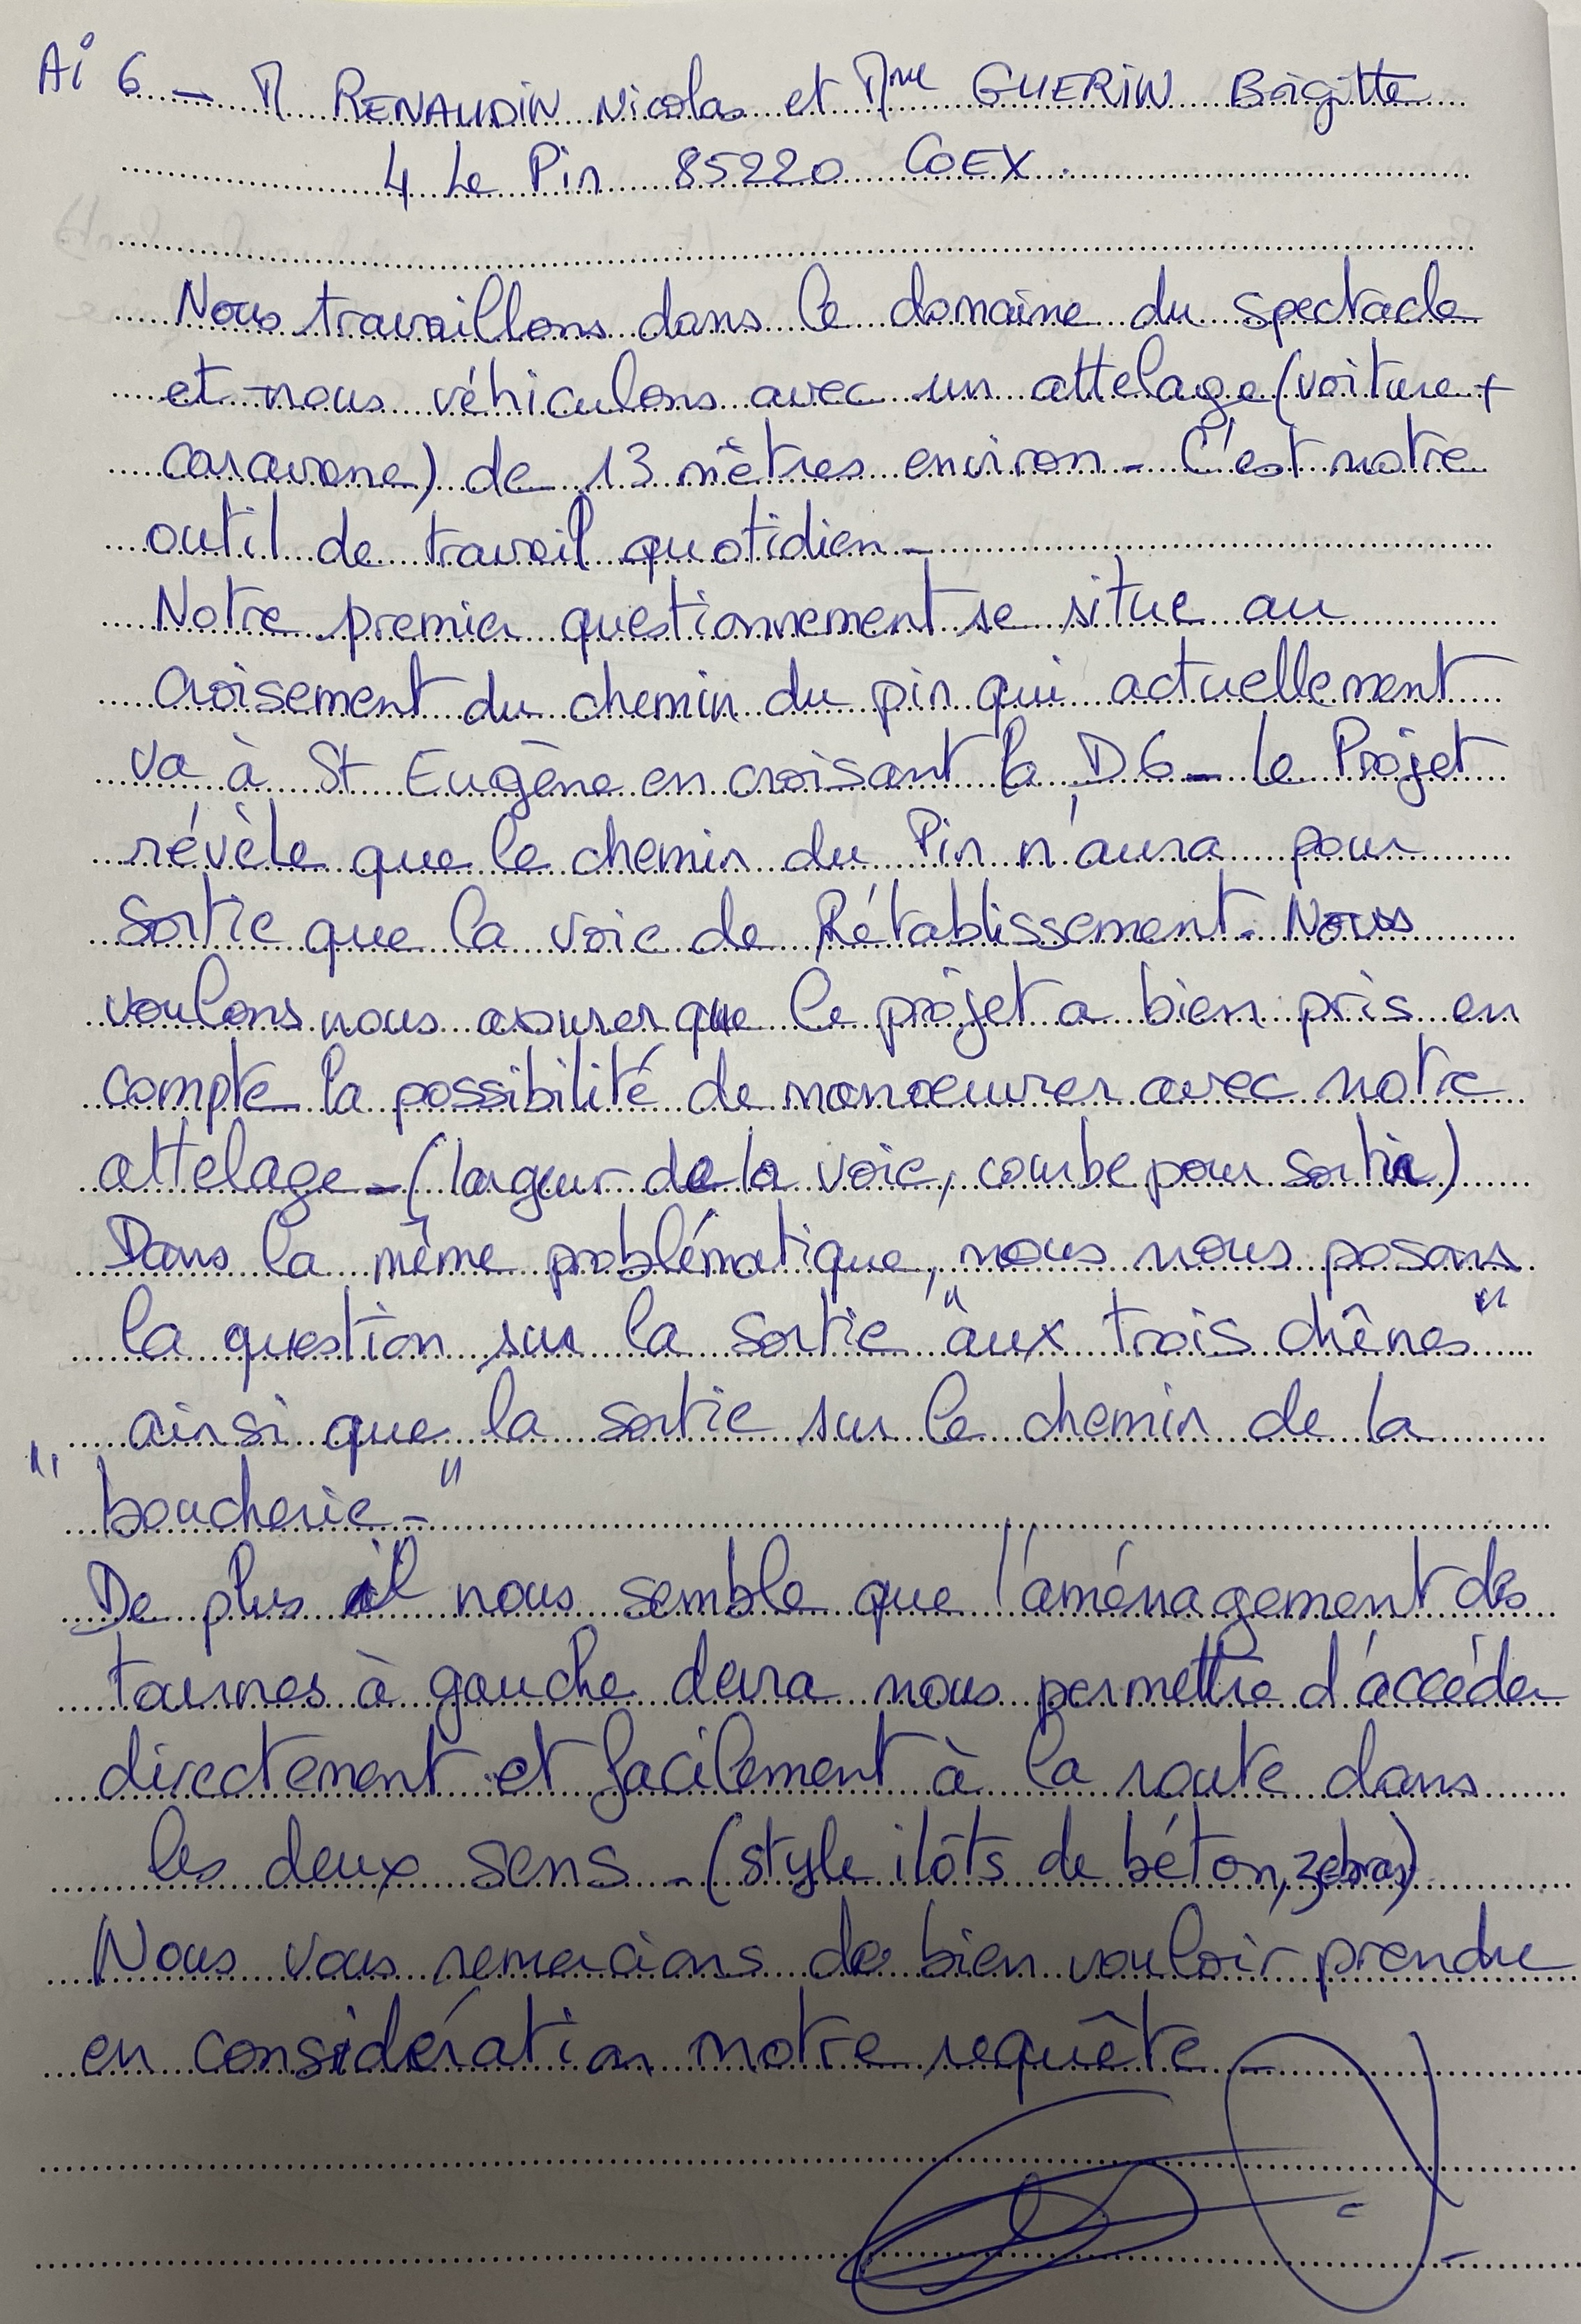 Ai 6 - M RENAUDIN Nicolas et Mme GUERIN Brigitte
4 Le Pin 85220 COEX.
Nous travaillons dans le domaine du spectacle
et nous véhiculons avec un attelage (voiture +
caravane) de 13 mètres environ - C'est notre
outil de travail quotidien -
Notre premier questionnement se situe au
croisement du chemin du pin qui actuellement
va à St Eugène en croisant la D6 - le Projet
révèle que le chemin du Pin n'aura pour
sortie que la voie de Rétablissement. Nous
voulons nous assurer que le projet a bien pris en
compte la possibilité de manoeuvrer avec notre
attelage - (largeur de la voie, courbe pour sortir)
Dans la même problématique, nous nous posons
la question sur la sortie "aux trois chênes"
ainsi que la sortie sur le chemin de la
"boucherie -"
De plus il nous semble que l'aménagement des
tournes à gauche devra nous permettre d'accéder
directement et facilement à la route dans
les deux sens - (style ilôts de béton, zebras)
Nous vous remercions de bien vouloir prendre
en considération notre requête -